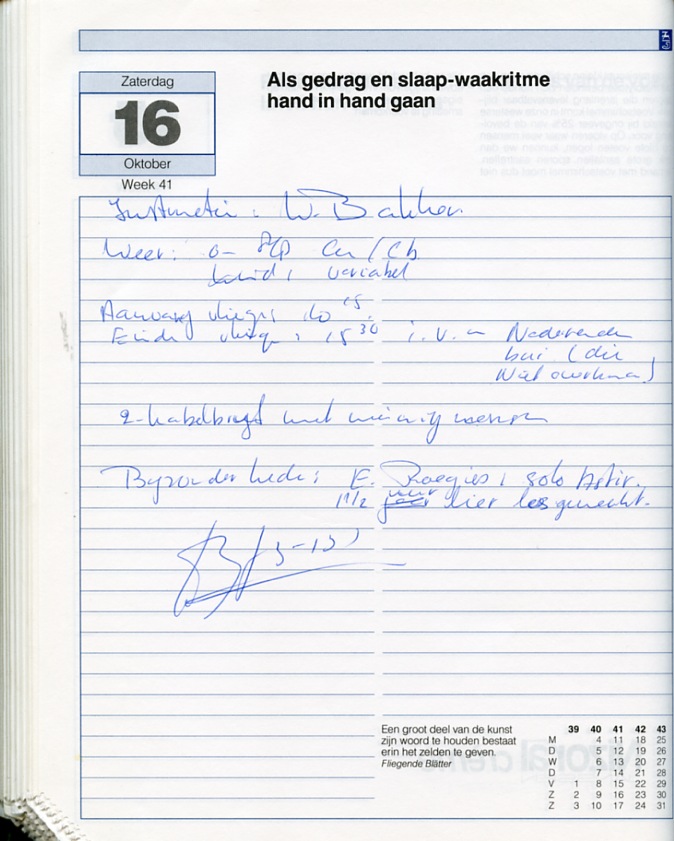 Zaterdag
16
Oktober
Week 41
Als gedrag en slaap-waakritme
hand in hand gaan
Instructie: W. Bakker
Weer: 0- Cu/Cb
wind: variabel
Aanvang vliegen 10 15
Einde 15 30 i.v.m Naderende
bui (die
niet overkwam)
2-kabelbedrijf met weinig mensen
Bijzonderheden: E. solo Astir.
1 1/2 uur hier les gewacht.
Een groot deel van de kunst
zijn woord te houden bestaat
erin het zelden te geven.
Fliegende Blätter
39 40 41 42 43
M 4 11 18 25
D 5 12 19 26
W 6 13 20 27
D 7 14 21 28
V 1 8 15 22 29
Z 2 9 16 23 30
Z 3 10 17 24 31